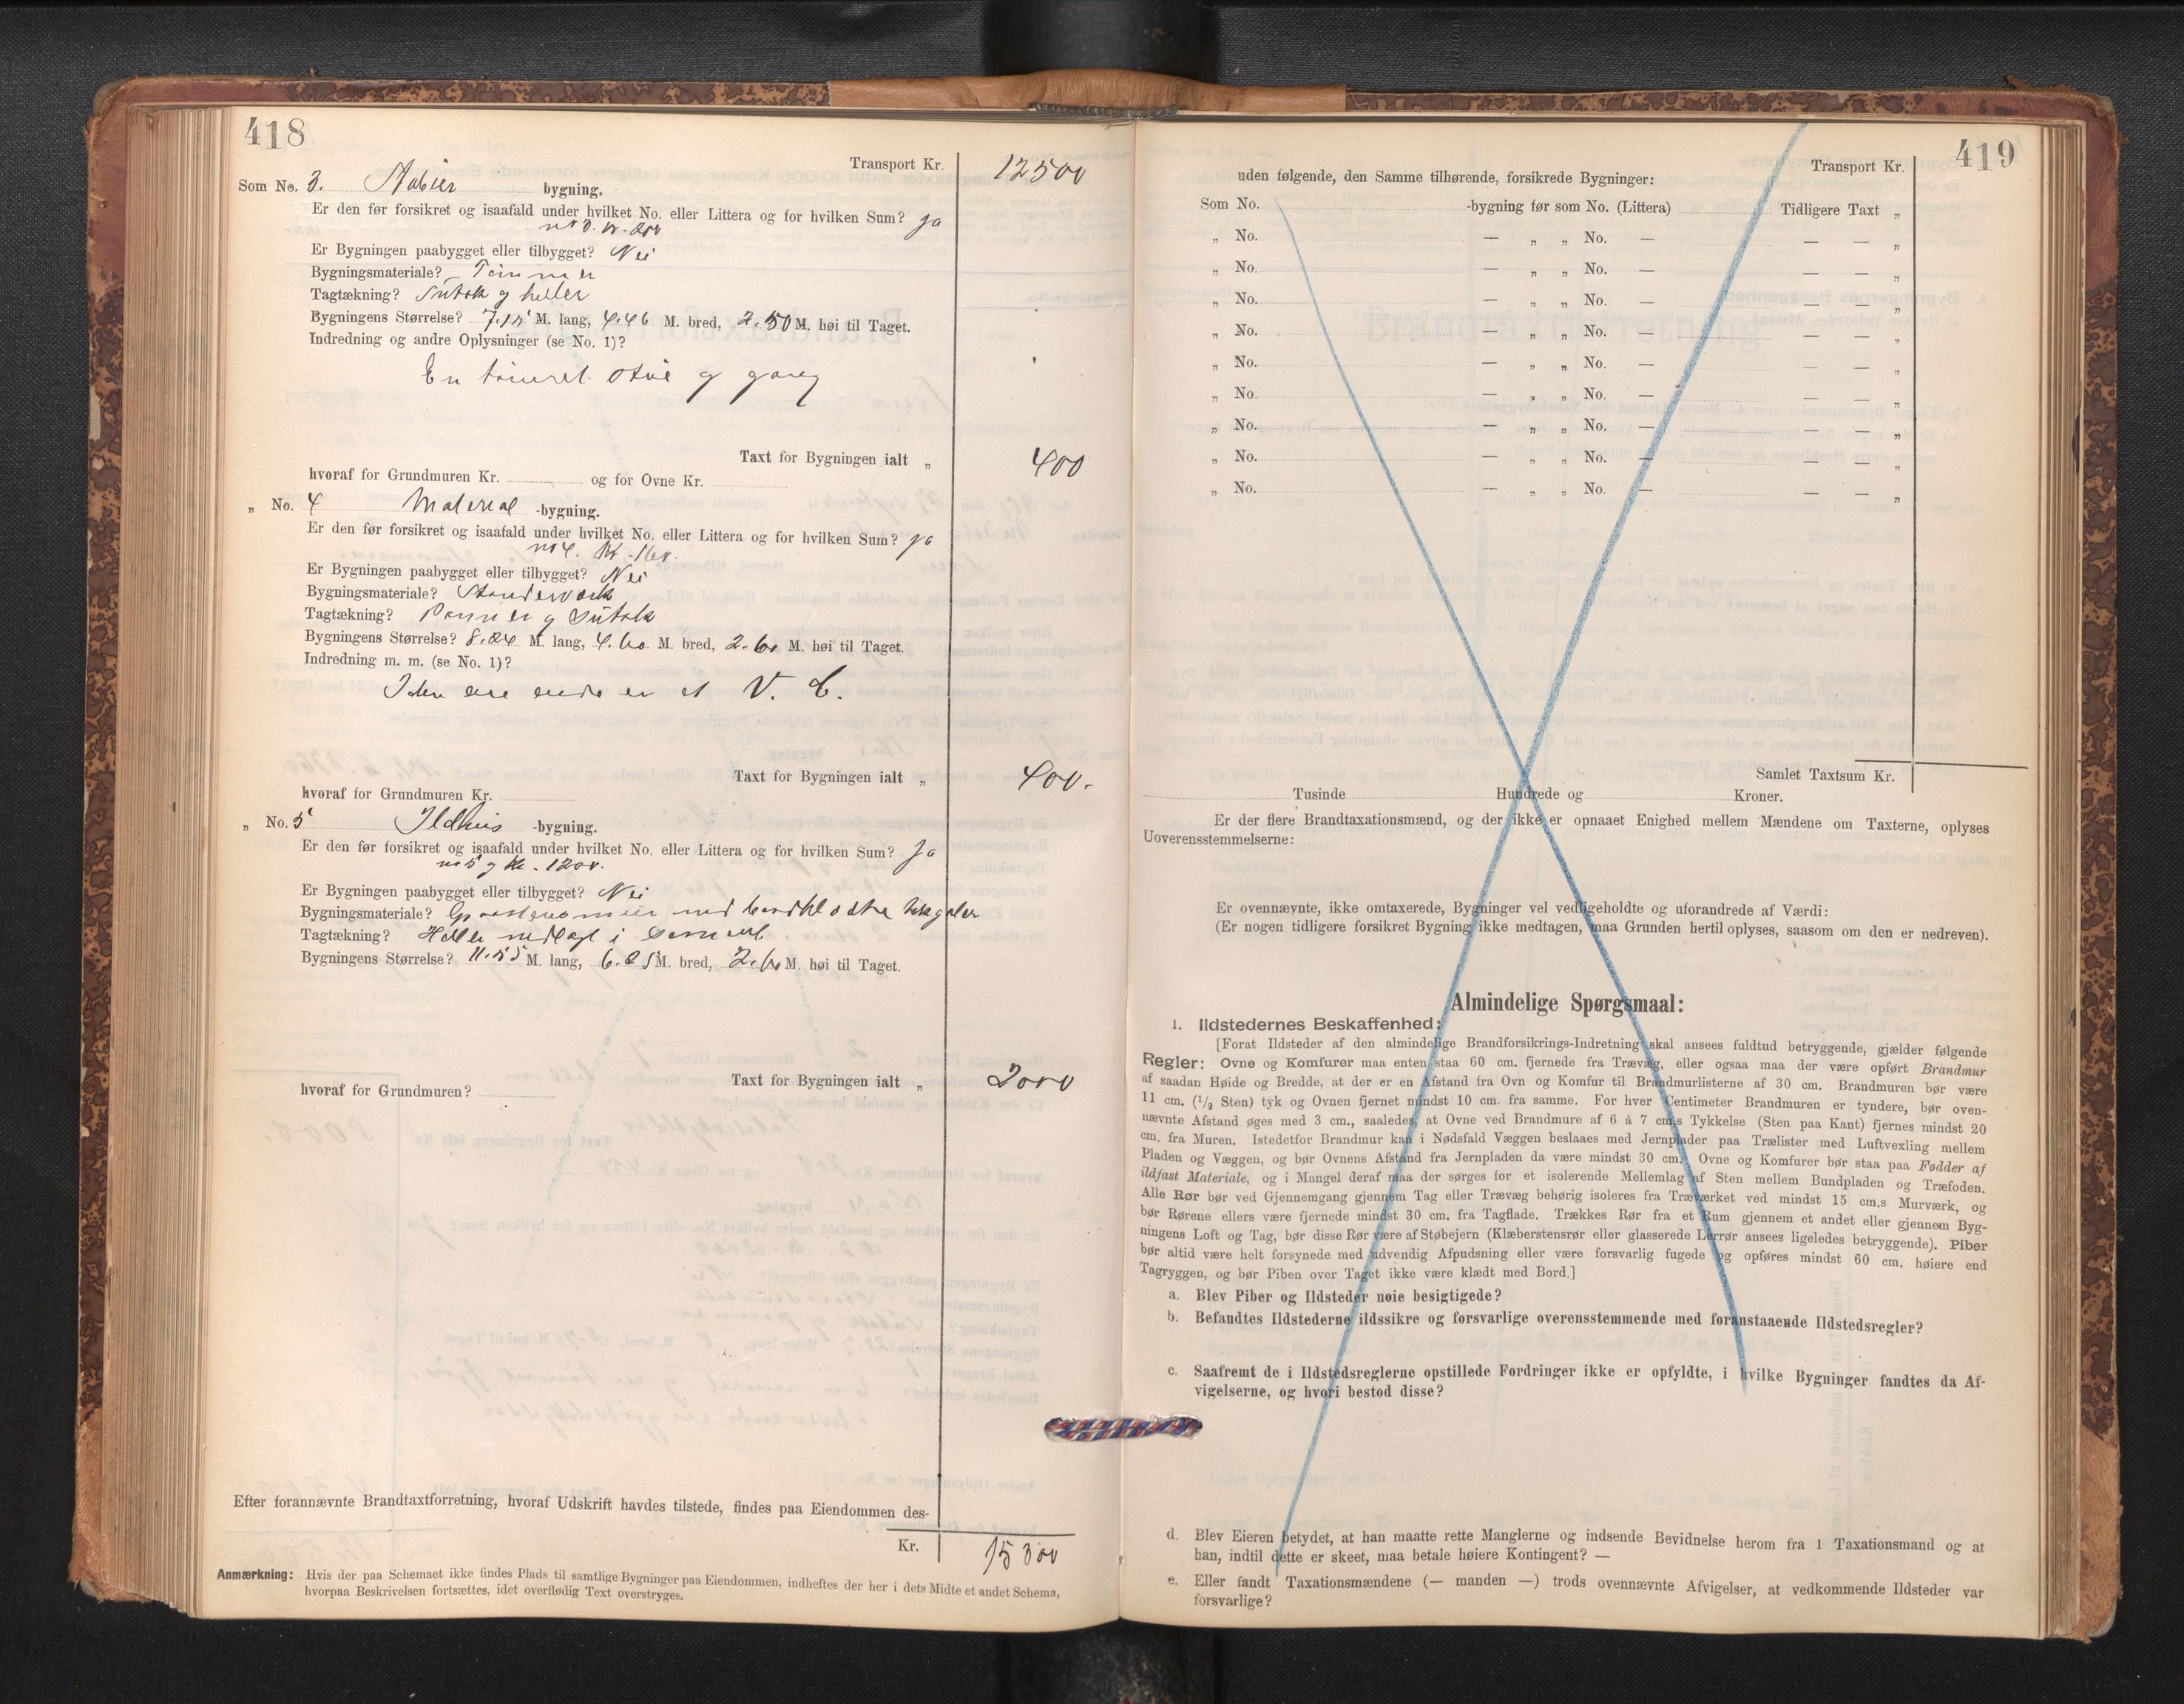 418
Transport Kr. 12500
Som No. 3. Stabur bygning.
Er den før forsikret og isaafald under hvilket No. eller Littera og for hvilken Sum? Ja
no 3. kr. 200
Er Bygningen paabygget eller tilbygget? Nei
Bygningsmateriale? Tømmer
Tagtækning? Sutak og heller
Bygningens Størrelse? 7.15 M. lang, 4.46 M. bred, 2.50 M. høi til Taget.
Indredning og andre Oplysninger (se No. 1)?
En tømret stue og gang
Taxt for Bygningen ialt „ 400
hvoraf for Grundmuren Kr. og for Ovne Kr.
„ No. 4 Material -bygning.
Er den før forsikret og isaafald under hvilket No. eller Littera og for hvilken Sum? Ja
no 4. kr. 160.
Er Bygningen paabygget eller tilbygget? Nei
Bygningsmateriale? Standerverk
Tagtækning? Panner og sutak
Bygningens Størrelse? 8.24 M. lang, 4.60 M. bred, 2.60 M. høi til Taget.
Indredning m. m. (se No. 1)?
I den ene ende er et V. C.
Taxt for Bygningen ialt „ 400.
hvoraf for Grundmuren Kr.
„ No. 5 Ildhus -bygning.
Er den før forsikret og isaafald under hvilket No. eller Littera og for hvilken Sum? Ja
no 5 og kr. 1200.
Er Bygningen paabygget eller tilbygget? Nei
Bygningsmateriale? med bordklædte
Tagtækning? Heller nedlagt i sement
Bygningens Størrelse? 11.55 M. lang, 6.25 M. bred, 2.60 M. høi til Taget.
Taxt for Bygningen ialt „ 2000
hvoraf for Grundmuren?
Efter forannævnte Brandtaxtforretning, hvoraf Udskrift havdes tilstede, findes paa Eiendommen des-
Kr. 15300
Anmærkning: Hvis der paa Schemaet ikke findes Plads til samtlige Bygninger paa Eiendommen, indheftes der her i dets Midte et andet Schema,
hvorpaa Beskrivelsen fortsættes, idet overflødig Text overstryges.
419
Transport Kr.
uden følgende, den Samme tilhørende, forsikrede Bygninger:
Som No. -bygning før som No. (Littera) Tidligere Taxt „
„ No. — „ „ No. — — — „
„ No. — „ „ No. — — — „
„ No. — „ „ No. — — — „
„ No. — „ „ No. — — — „
„ No. — „ „ No. — — — „
„ No. — „ „ No. — — — „
„ No. — „ „ No. — — — „
„ No. — „ „ No. — — — „
„ No. — „ „ No. — — — „
Samlet Taxtsum Kr.
Tusinde Hundrede og Kroner.
Er der flere Brandtaxationsmænd, og der ikke er opnaaet Enighed mellem Mændene om Taxterne, oplyses
Uoverensstemmelserne:
Er ovennævnte, ikke omtaxerede, Bygninger vel vedligeholdte og uforandrede af Værdi:
(Er nogen tidligere forsikret Bygning ikke medtagen, maa Grunden hertil oplyses, saasom om den er nedreven).
Almindelige Spørgsmaal:
1. Ildstedernes Beskaffenhed:
[Forat Ildsteder af den almindelige Brandforsikrings-Indretning skal ansees fuldtud betryggende, gjælder følgende
Regler: Ovne og Komfurer maa enten staa 60 cm. fjernede fra Trævæg, eller ogsaa maa der være opført Brandmur
af saadan Høide og Bredde, at der er en Afstand fra Ovn og Komfur til Brandmurlisterne af 30 cm. Brandmuren bør være
11 cm. (1/2 Sten) tyk og Ovnen fjernet mindst 10 cm. fra samme. For hver Centimeter Brandmuren er tyndere, bør oven-
nævnte Afstand øges med 3 cm., saaledes, at Ovne ved Brandmure af 6 à 7 cm.s Tykkelse (Sten paa Kant) fjernes mindst 20
cm. fra Muren. Istedetfor Brandmur kan i Nødsfald Væggen beslaaes med Jernplader paa Trælister med Luftvexling mellem
Pladen og Væggen, og bør Ovnens Afstand fra Jernpladen da være mindst 30 cm. Ovne og Komfurer bør staa paa Fødder af
ildfast Materiale, og i Mangel deraf maa der sørges for et isolerende Mellemlag af Sten mellem Bundpladen og Træfoden.
Alle Rør bør ved Gjennemgang gjennem Tag eller Trævæg behørig isoleres fra Træværket ved mindst 15 cm.s Murværk, og
bør Rørene ellers være fjernede mindst 30 cm. fra Tagflade. Trækkes Rør fra et Rum gjennem et andet eller gjennem Byg-
ningens Loft og Tag, bør disse Rør være af Støbejern (Klæberstensrør eller glasserede Lerrør ansees ligeledes betryggende). Piber
bør altid være helt forsynede med udvendig Afpudsning eller være forsvarlig fugede og opføres mindst 60 cm. høiere end
Tagryggen, og bør Piben over Taget ikke være klædt med Bord.]
a. Blev Piber og Ildsteder nøie besigtigede?
b. Befandtes Ildstederne ildssikre og forsvarlige overensstemmende med foranstaaende Ildstedsregler?
c. Saafremt de i Ildstedsreglerne opstillede Fordringer ikke er opfyldte, i hvilke Bygninger fandtes da Af-
vigelserne, og hvori bestod disse?
d. Blev Eieren betydet, at han maatte rette Manglerne og indsende Bevidnelse herom fra 1 Taxationsmand og at
han, indtil dette er skeet, maa betale høiere Kontingent? —
e. Eller fandt Taxationsmændene (— manden —) trods ovennævnte Afvigelser, at vedkommende Ildsteder var
forsvarlige?